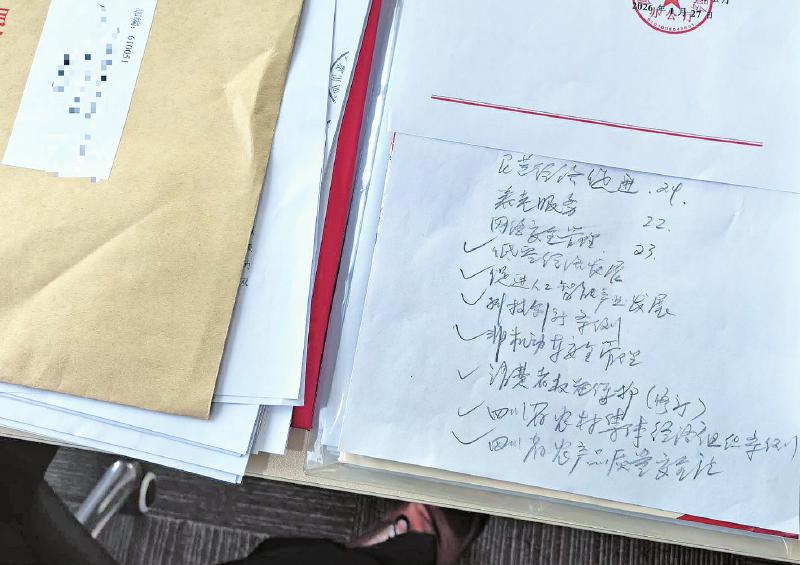 610051
2026年1月27日
办公厅
民营经济促进.24.
养老服务 22.
网络安全管理 23.
✓低空经济发展
✓促进人工智能产业发展
✓科技创新条例
✓非机动车安全管理
✓消费者权益保护(修订)
✓四川省农村集体经济组织条例
✓四川省农产品质量安全法